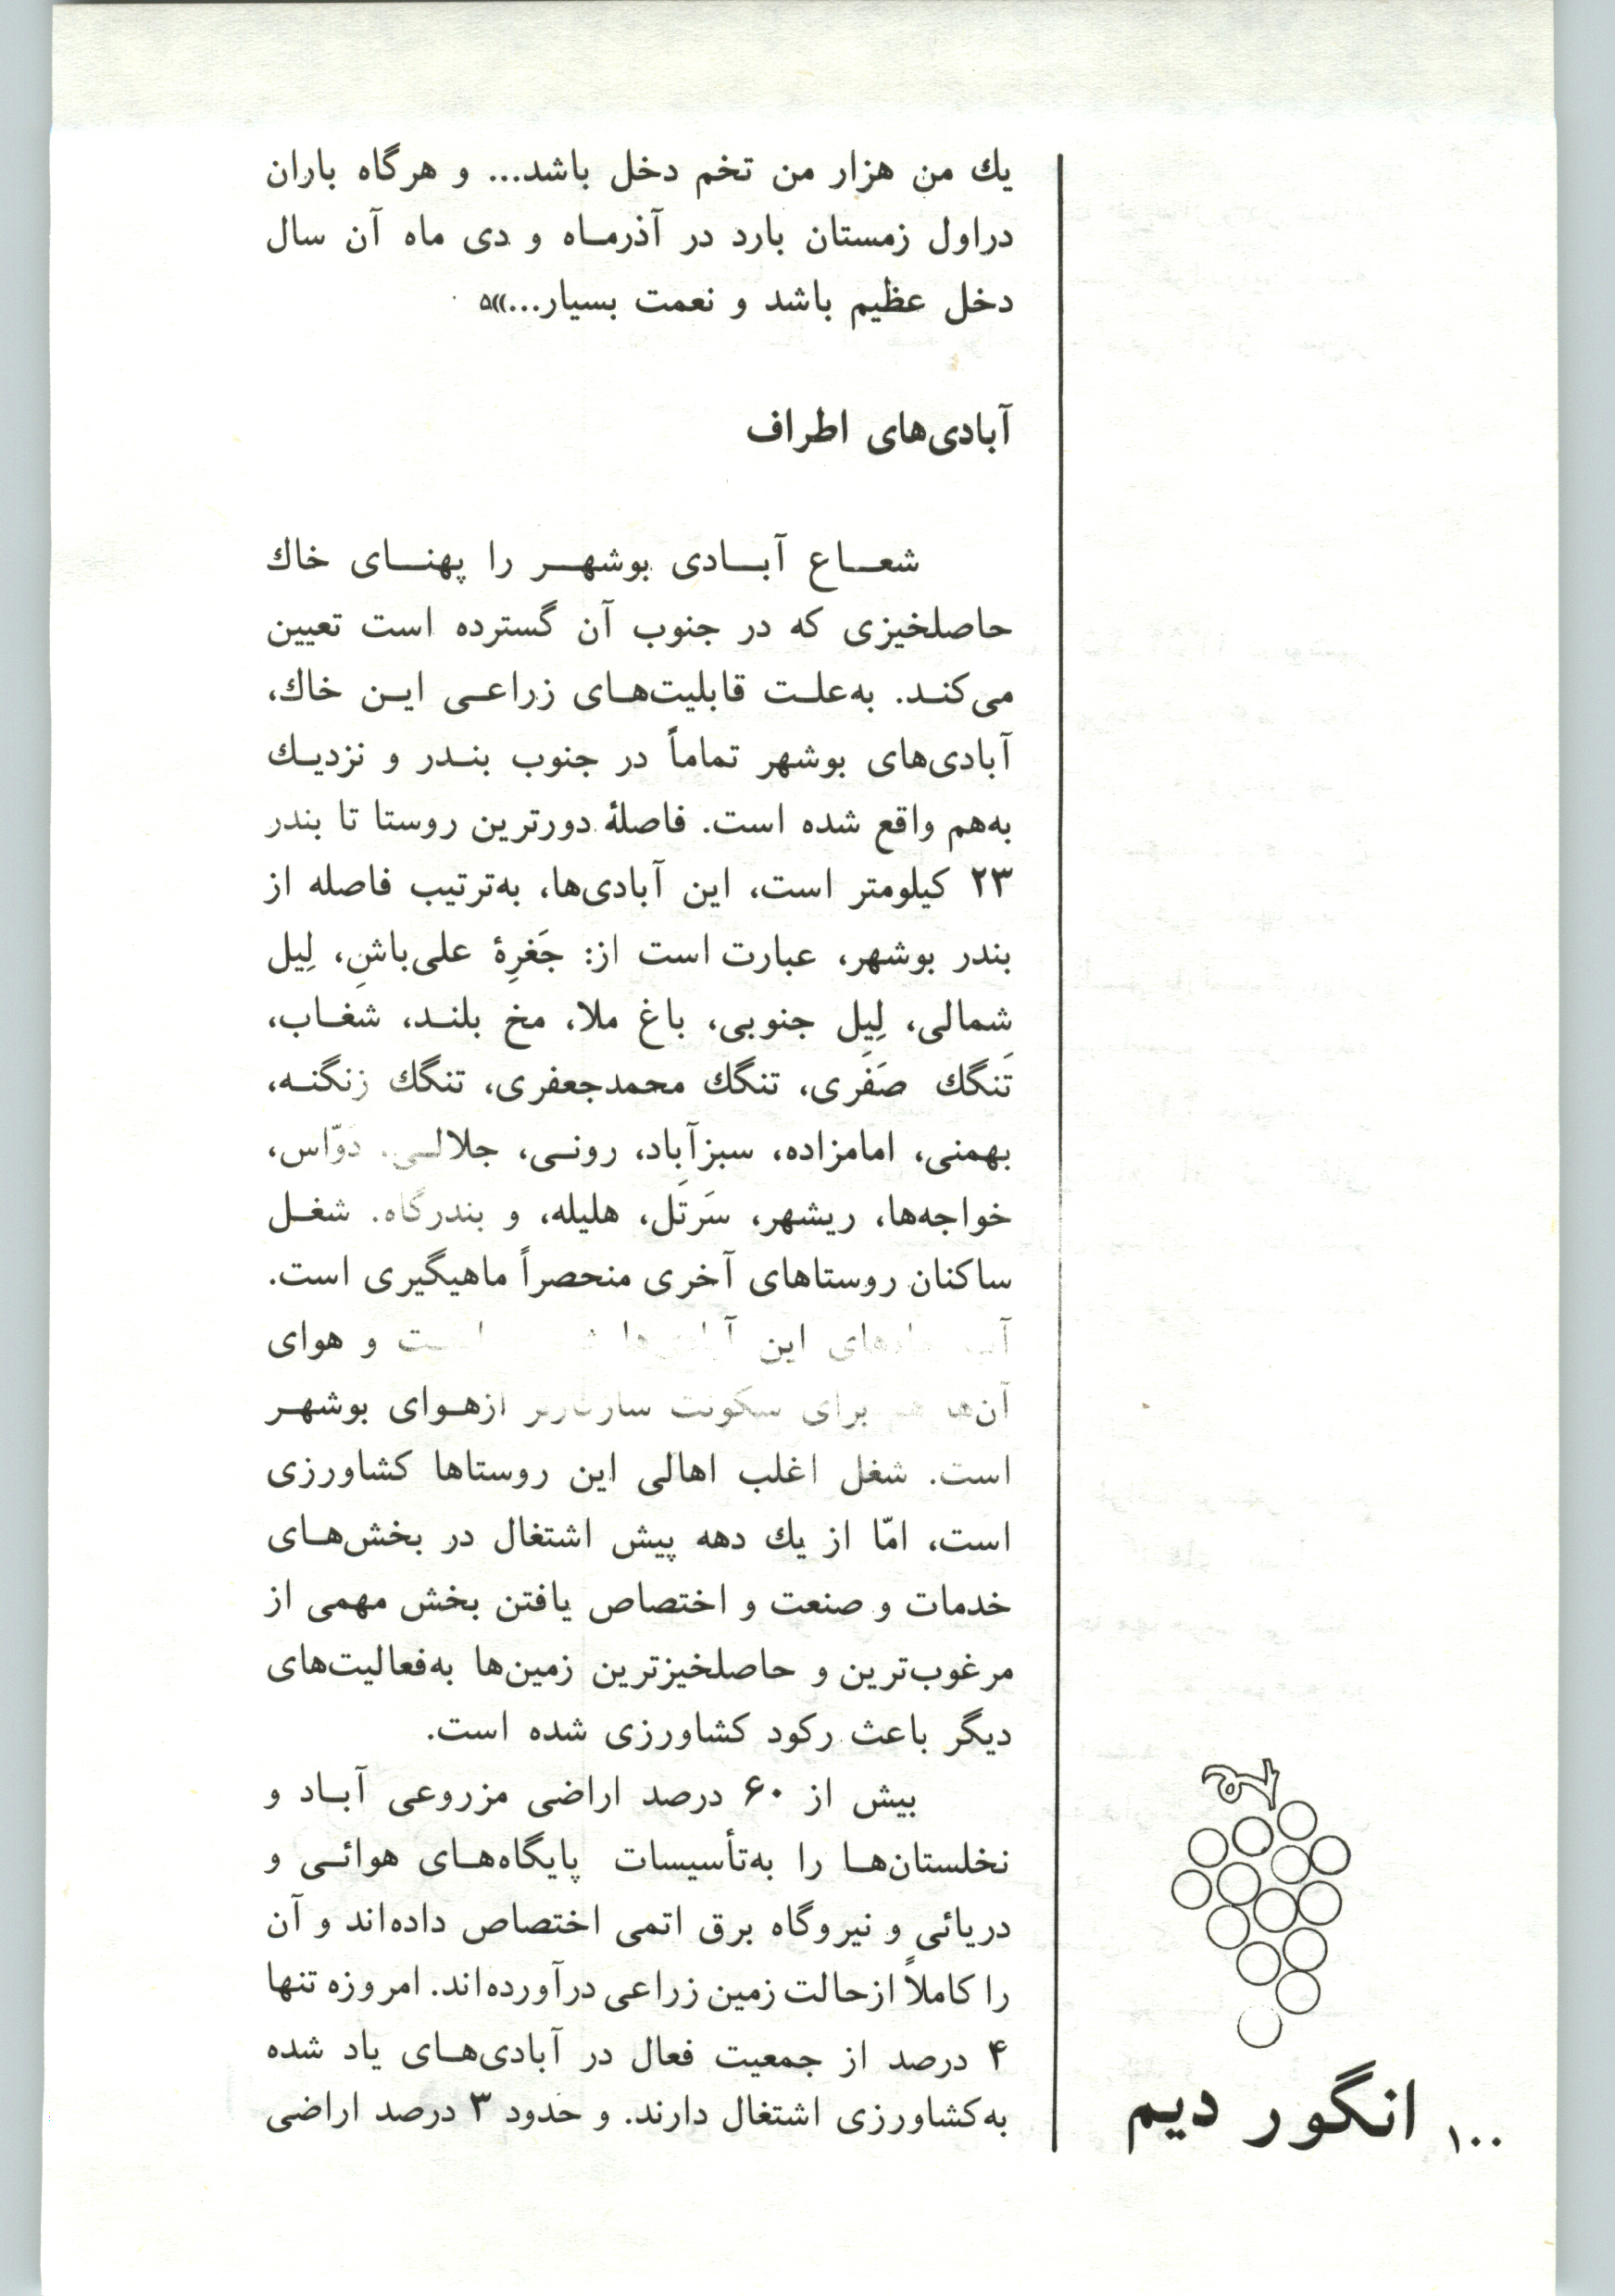 یك من هزار من تخم دخل باشد... و هرگاه باران
دراول زمستان بارد در آذرماه و دی ماه آن سال
دخل عظیم باشد و نعمت بسیار...»۵
آبادی‌های اطراف
شعاع آبادی بوشهر را پهنای خاك
حاصلخیزی که در جنوب آن گسترده است تعیین
می‌کند. به‌علت قابلیت‌های زراعی این خاك،
آبادی‌های بوشهر تماماً در جنوب بندر و نزدیك
به‌هم واقع شده است. فاصلهٔ دورترین روستا تا بندر
۲۳ کیلومتر است، این آبادی‌ها، به‌ترتیب فاصله از
بندر بوشهر، عبارت است از: جَغرِهٔ علی‌باشِ، لِیل
شمالی، لِیل جنوبی، باغ ملا، مخ بلند، شغاب،
تَنگك صَفَری، تنگك محمدجعفری، تنگك زنگنه،
بهمنی، امامزاده، سبزآباد، رونی، جلالی، دوّاس،
خواجه‌ها، ریشهر، سَرتَل، هلیله، و بندرگاه. شغل
ساکنان روستاهای آخری منحصراً ماهیگیری است.
این و هوای
برای سکونت ازهوای بوشهر
است. شغل اغلب اهالی این روستاها کشاورزی
است، امّا از یك دهه پیش اشتغال در بخش‌های
خدمات و صنعت و اختصاص یافتن بخش مهمی از
مرغوب‌ترین و حاصلخیزترین زمین‌ها به‌فعالیت‌های
دیگر باعث رکود کشاورزی شده است.
بیش از ۶۰ درصد اراضی مزروعی آباد و
نخلستان‌ها را به‌تأسیسات پایگاه‌های هوائی و
دریائی و نیروگاه برق اتمی اختصاص داده‌اند و آن
را کاملاً ازحالت زمین زراعی درآورده‌اند. امروزه تنها
۴ درصد از جمعیت فعال در آبادی‌های یاد شده
به‌کشاورزی اشتغال دارند. و حدود ۳ درصد اراضی
۱۰۰ انگور دیم